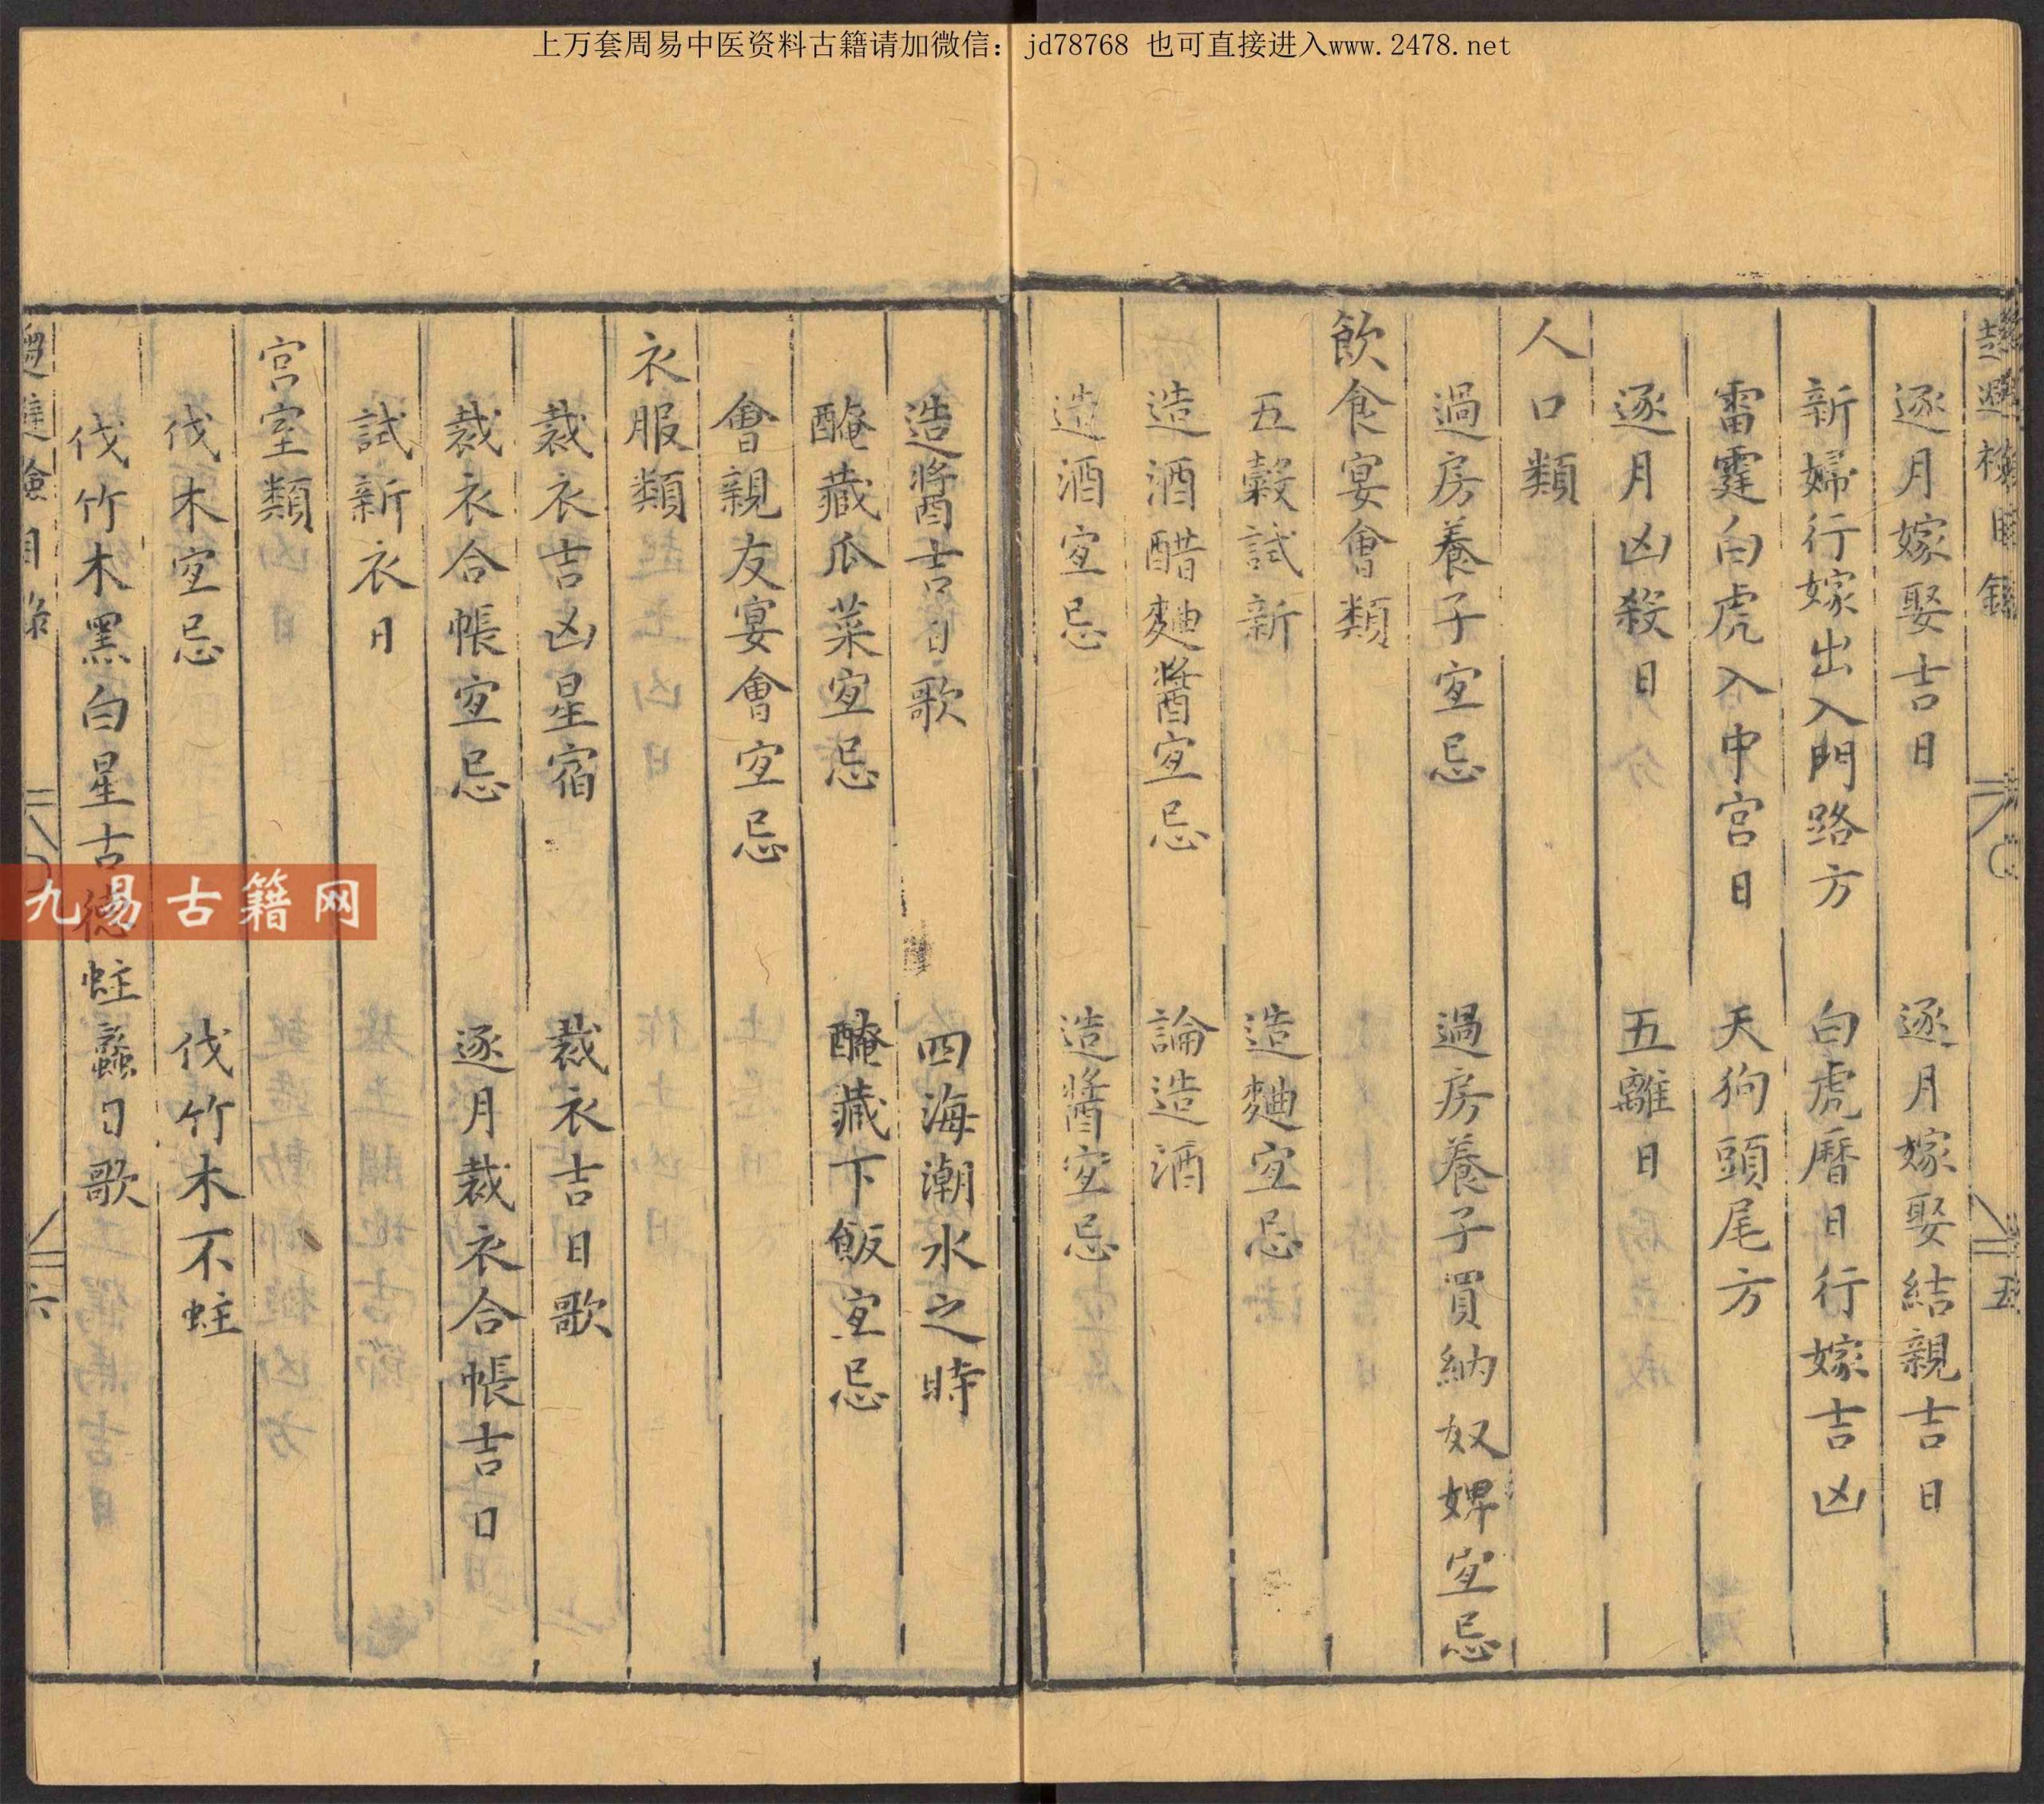 上万套周易中医资料古籍请加微信：jd78768 也可直接进入www.2478.net
逐月嫁娶吉日 逐月嫁娶結親吉日
新婦行嫁出入門路方 白虎曆日行嫁吉凶
雷霆白虎入中宮日 天狗頭尾方
逐月凶殺日 五離日
人口類
過房養子宜忌 過房養子買納奴婢宜忌
飲食宴會類
五穀試新 造麯宜忌
造酒醋麯醬宜忌 論造酒
造酒宜忌 造醬宜忌
造醬吉日歌 四海潮水之時
醃藏瓜菜宜忌 醃藏下飯宜忌
會親友宴會宜忌
衣服類
裁衣吉凶星宿 裁衣吉日歌
裁衣合帳宜忌 逐月裁衣合帳吉日
試新衣日
宮室類
伐木宜忌 伐竹木不蛀
伐竹木黑白星古德蛀蠡日歌
九易古籍网
五
六